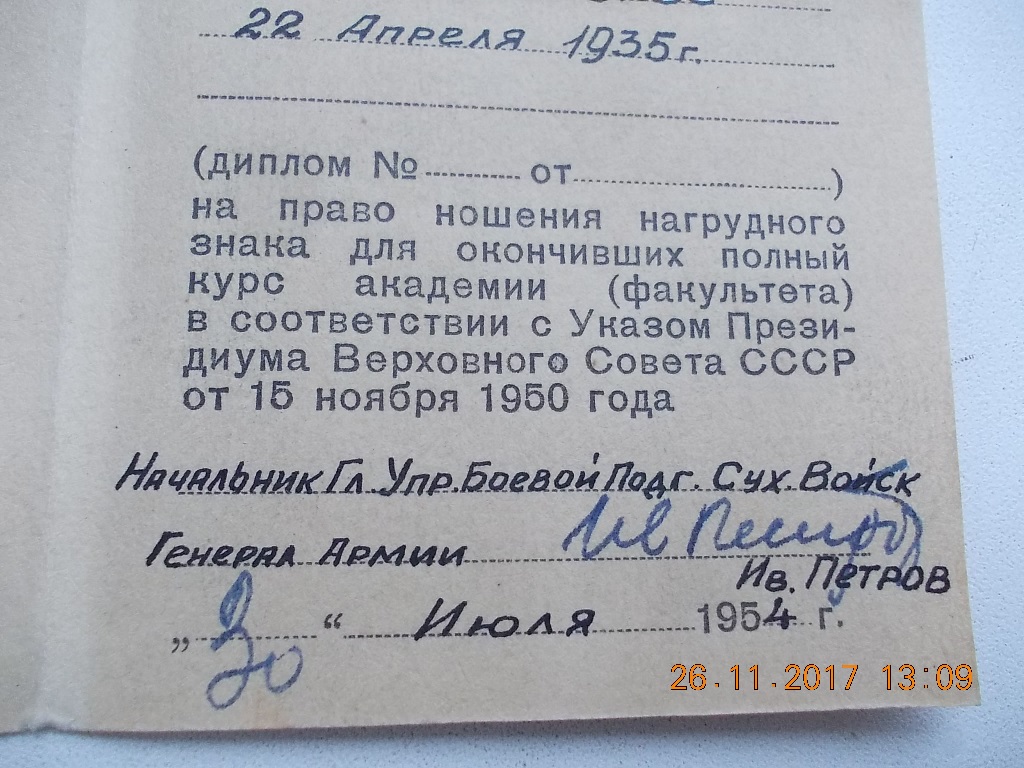 22 Апреля 1935г.
(диплом № от )
на право ношения нагрудного
знака для окончивших полный
курс академии (факультета)
в соответствии с Указом Прези-
диума Верховного Совета СССР
от 15 ноября 1950 года
Начальник Гл. Упр. Боевой Подг. Сух. Войск
Генерал Армии Ив Петров
Ив. Петров
„30“ Июля 1954 г.
26.11.2017 13:09